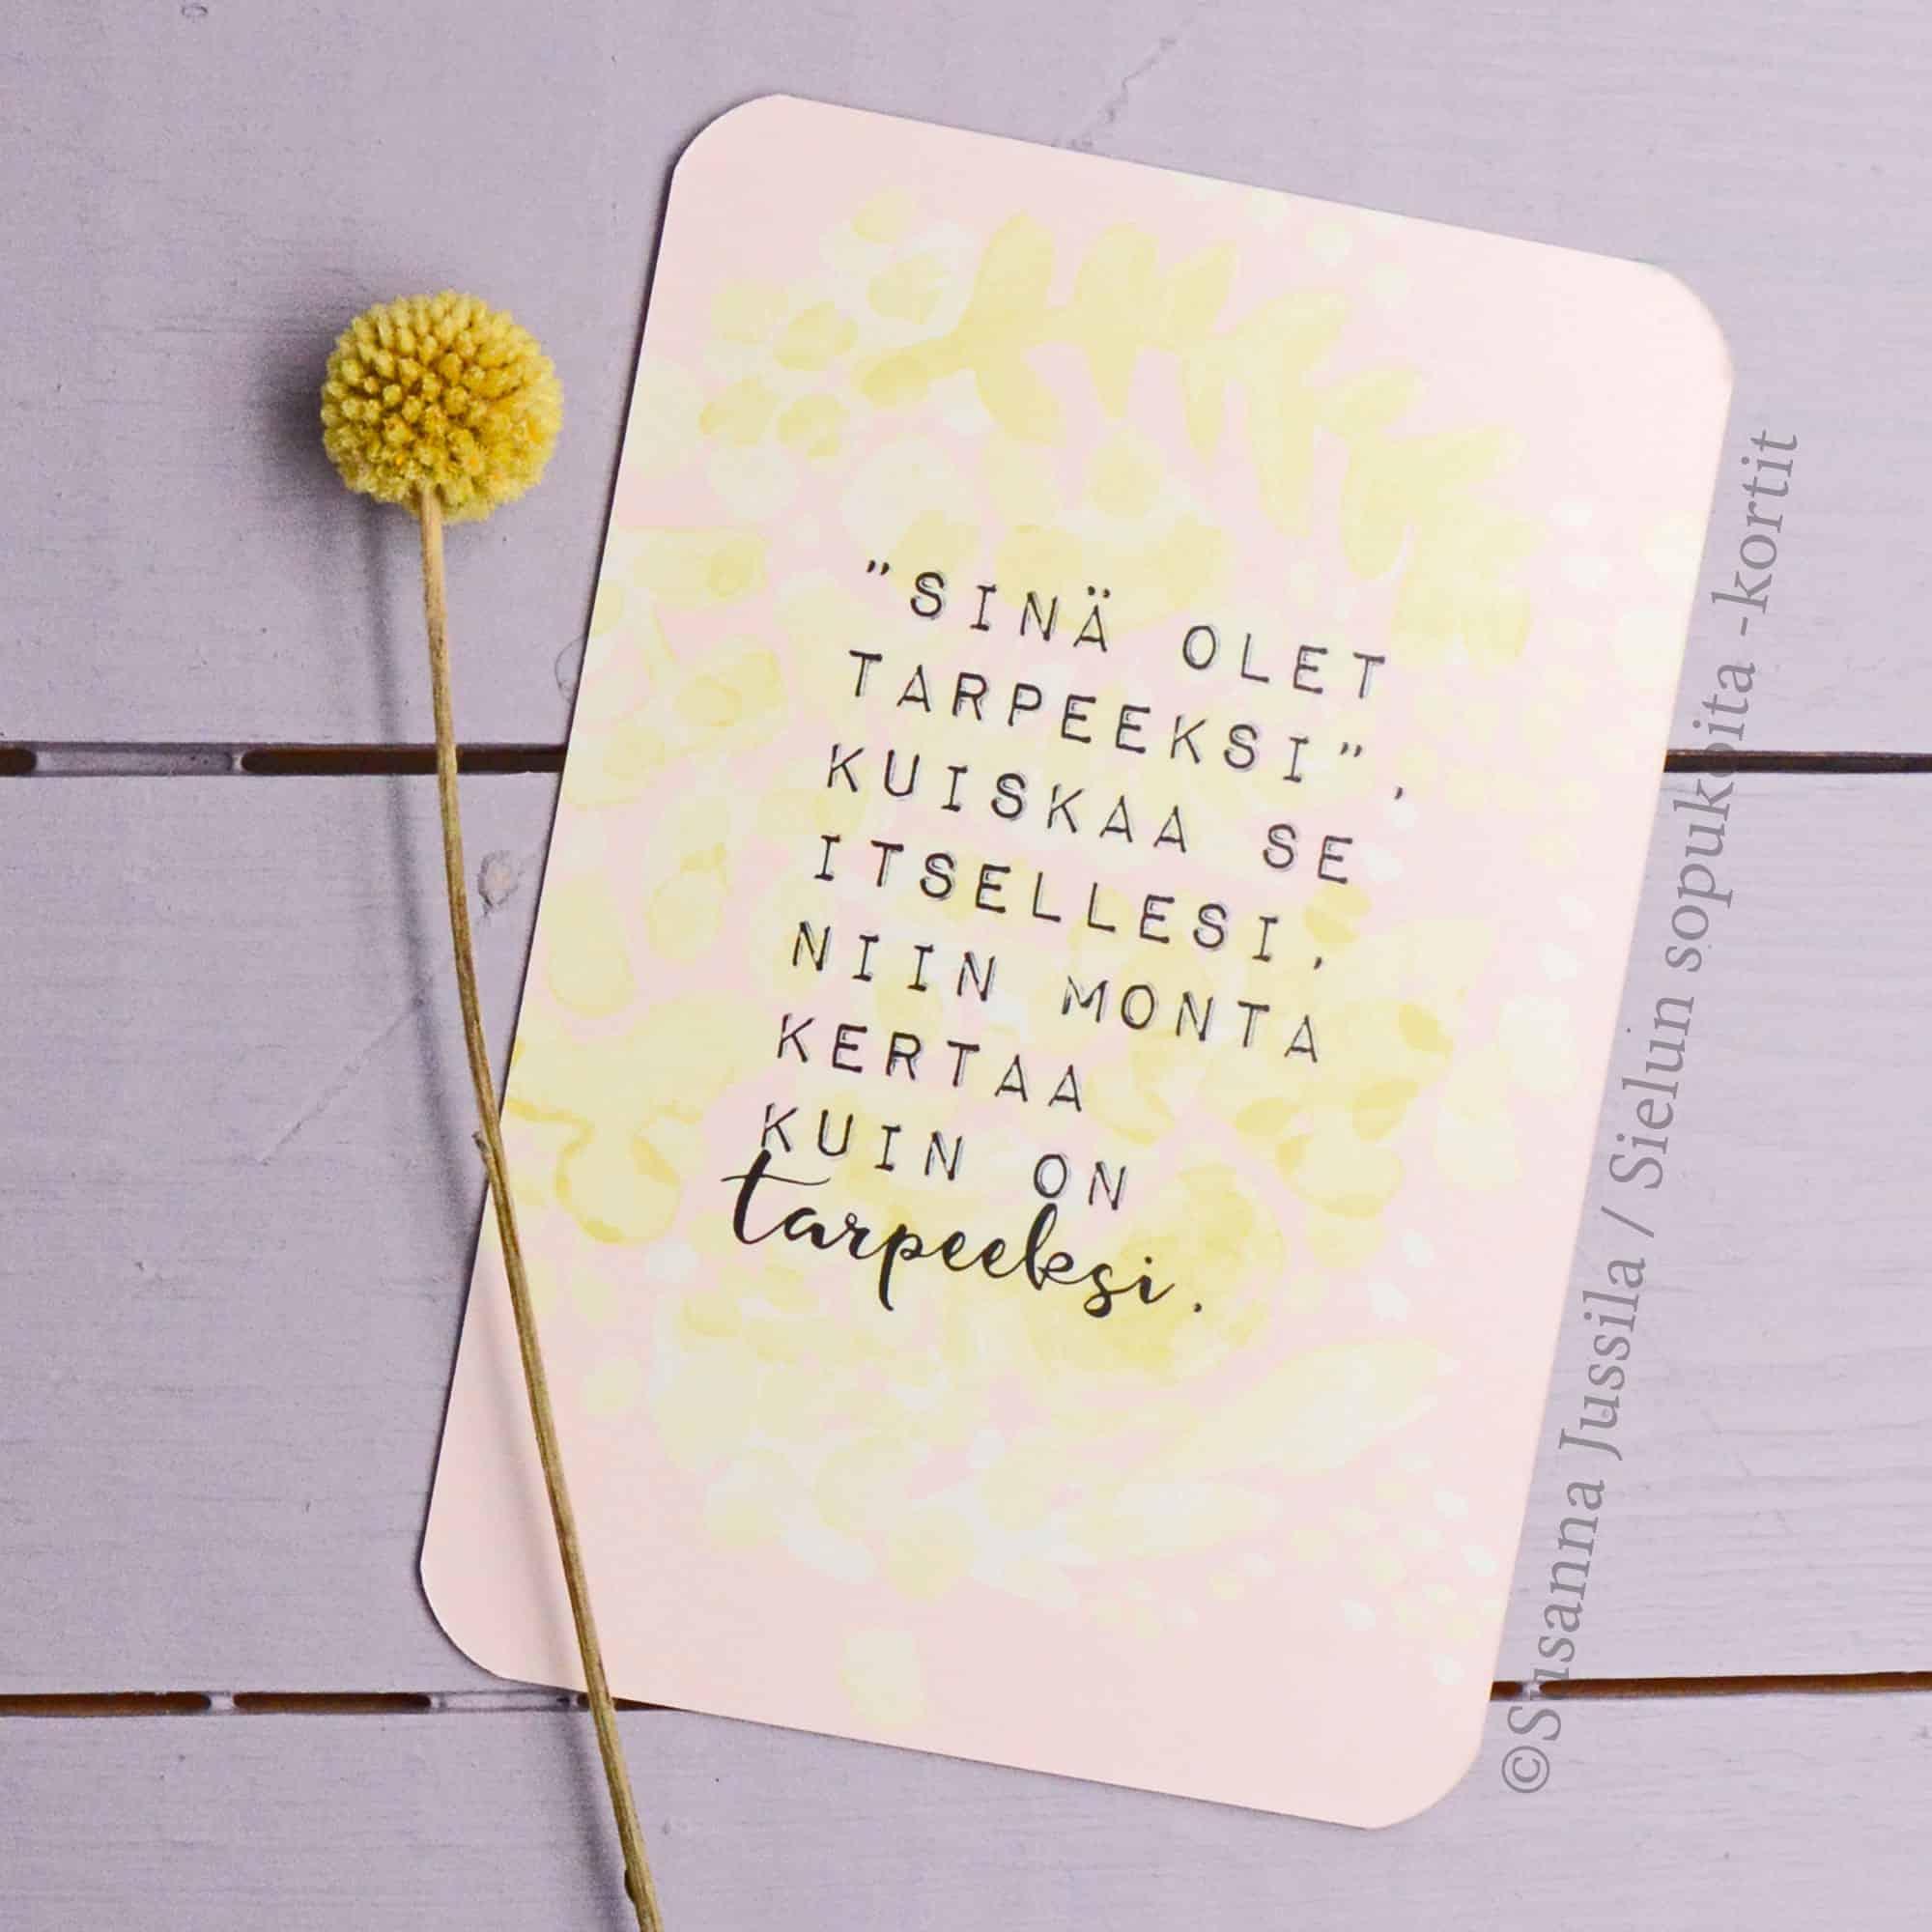 "SINÄ OLET
TARPEEKSI",
KUISKAA SE
ITSELLESI,
NIIN MONTA
KERTAA
KUIN ON
tarpeeksi.
©Susanna Jussila / Sielun sopukoita -kortit